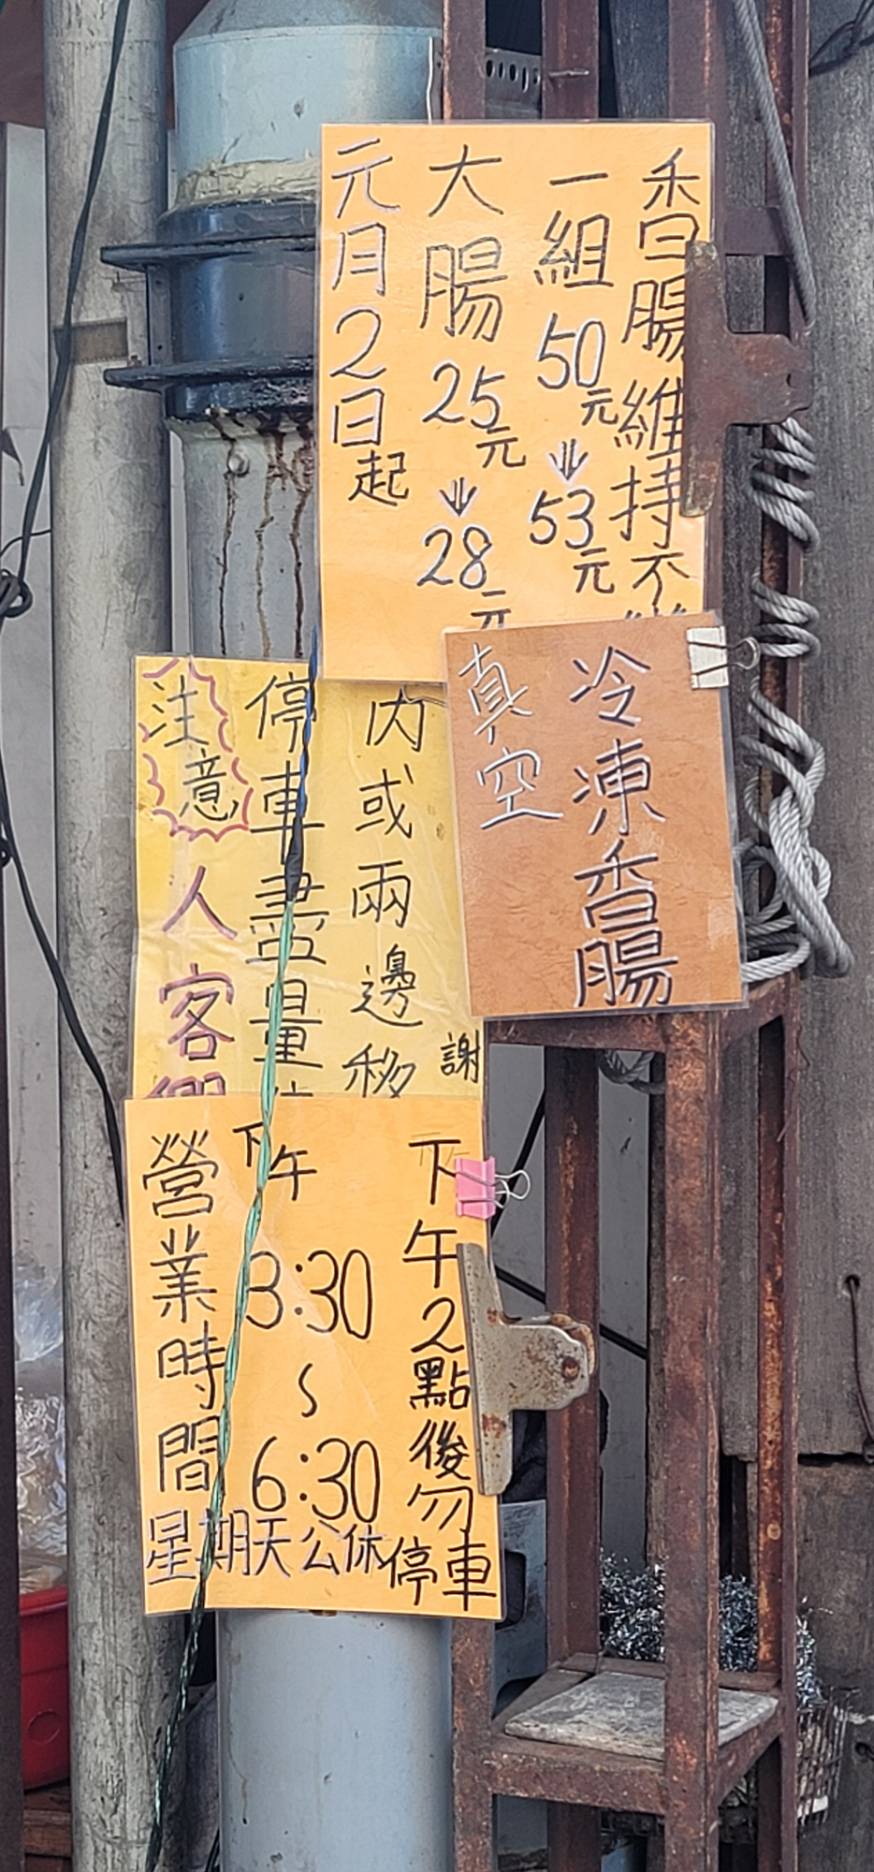 元月2日起
大腸25元⇓28元
一組50元⇓53元
香腸維持不
真空
冷凍香腸
注意
人客
停車盡量
內或兩邊移
謝
營業時間
下午
3:30
~
6:30
星期天公休
下午2點後勿
停車